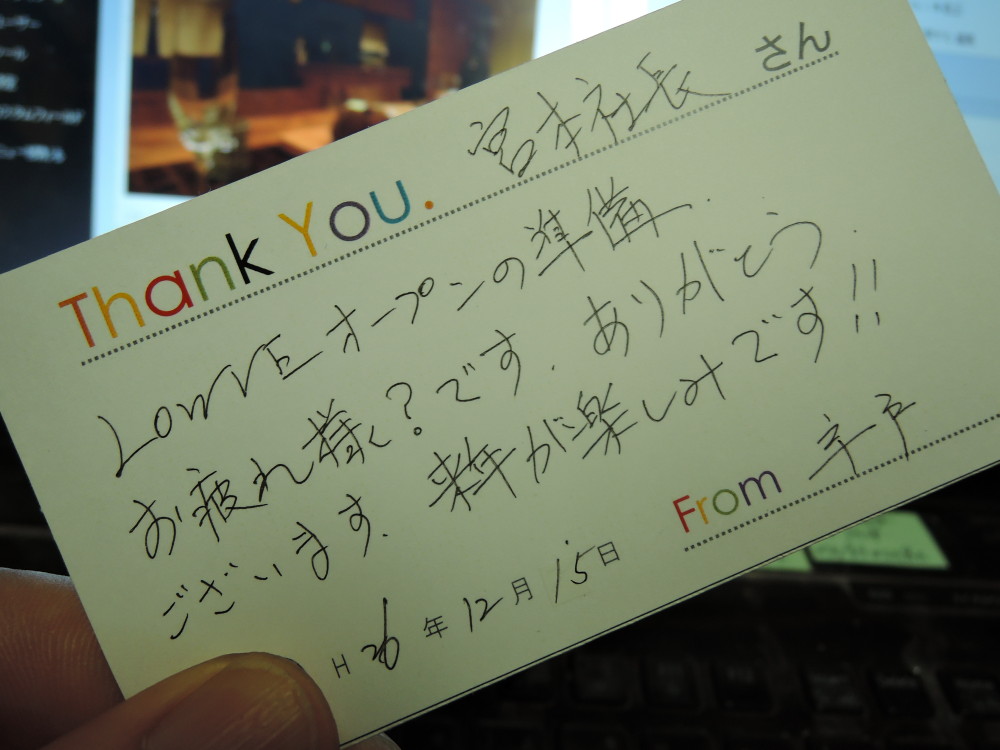 Thank You. 宮本社長 さん
LOWVE オープンの準備
お疲れ様?です. ありがとう
ございます. 来年が楽しみです!!
From 辛戸
H 26 年 12 月 15 日